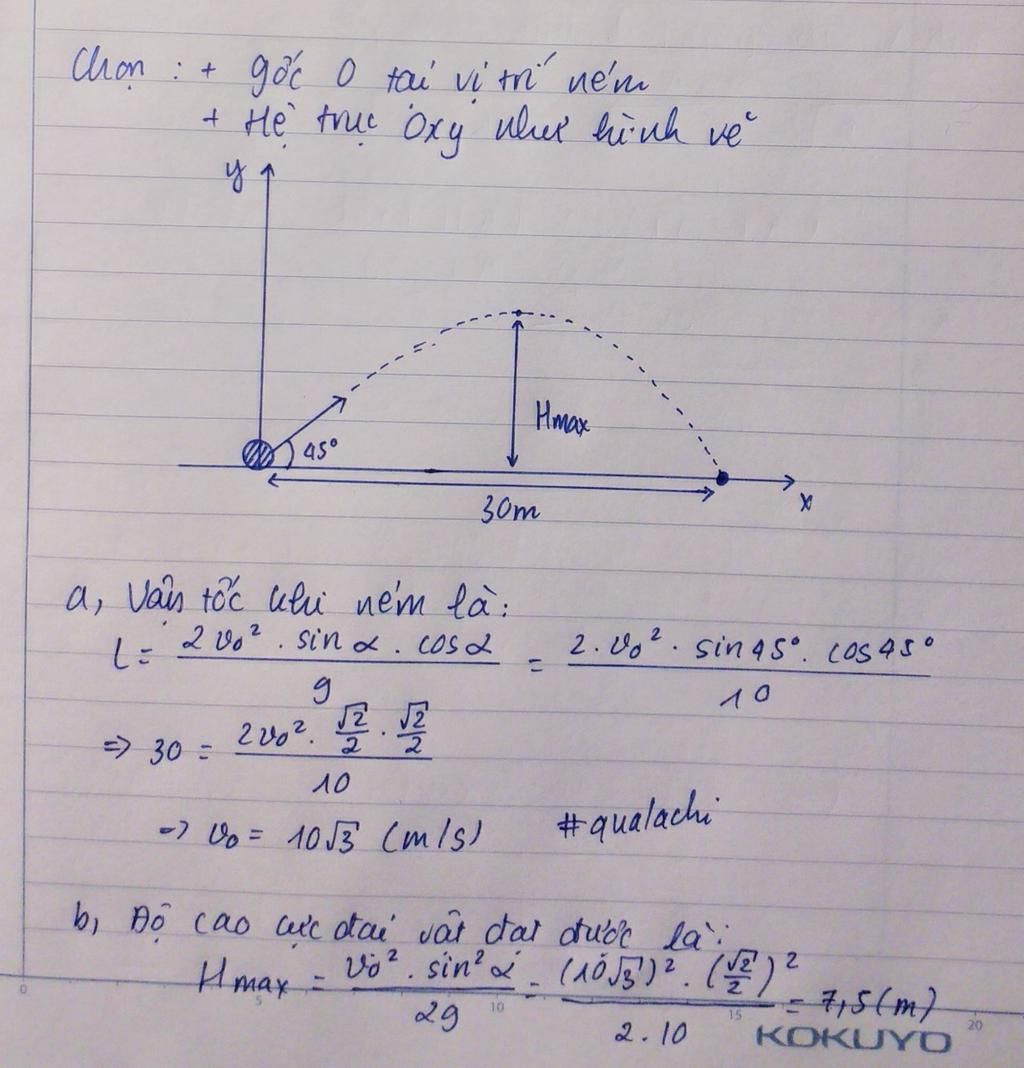 Chọn : + gốc O tại vị trí ném
+ Hệ trục Oxy như hình vẽ
y
45°
Hmax
30m
x
a, Vận tốc khi ném là:
L = 2v₀² . sin α . cos α / g = 2.v₀² . sin 45° . cos 45° / 10
=> 30 = 2v₀² . √2/2 . √2/2 / 10
=> v₀ = 10√3 (m/s) #qualachi
b, Độ cao cực đại vật đạt được là:
Hmax = v₀² . sin² α / 2g = (10√3)² . (√2/2)² / 2.10 = 7,5 (m)
0 5 10 15 20
KOKUYO